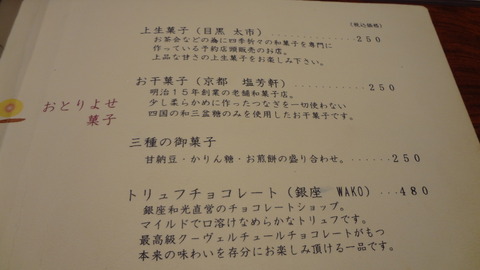 (税込価格)
上生菓子(目黒 太市)‥‥‥‥‥‥250
お茶会などの為に四季折々の和菓子を専門に
作っている予約店頭販売のお店。
上品な甘さの上生菓子をお楽しみ下さい。
おとりよせ
菓子
お干菓子(京都 塩芳軒)‥‥‥‥‥250
明治15年創業の老舗和菓子店。
少し柔らかめに作ったつなぎを一切使わない
四国の和三盆糖のみを使用したお干菓子です。
三種の御菓子
甘納豆・かりん糖・お煎餅の盛り合わせ。‥‥‥250
トリュフチョコレート(銀座 WAKO)‥‥480
銀座和光直営のチョコレートショップ。
マイルドで口溶けなめらかなトリュフです。
最高級クーヴェルチュールチョコレートがもつ
本来の味わいを存分にお楽しみ頂ける一品です。